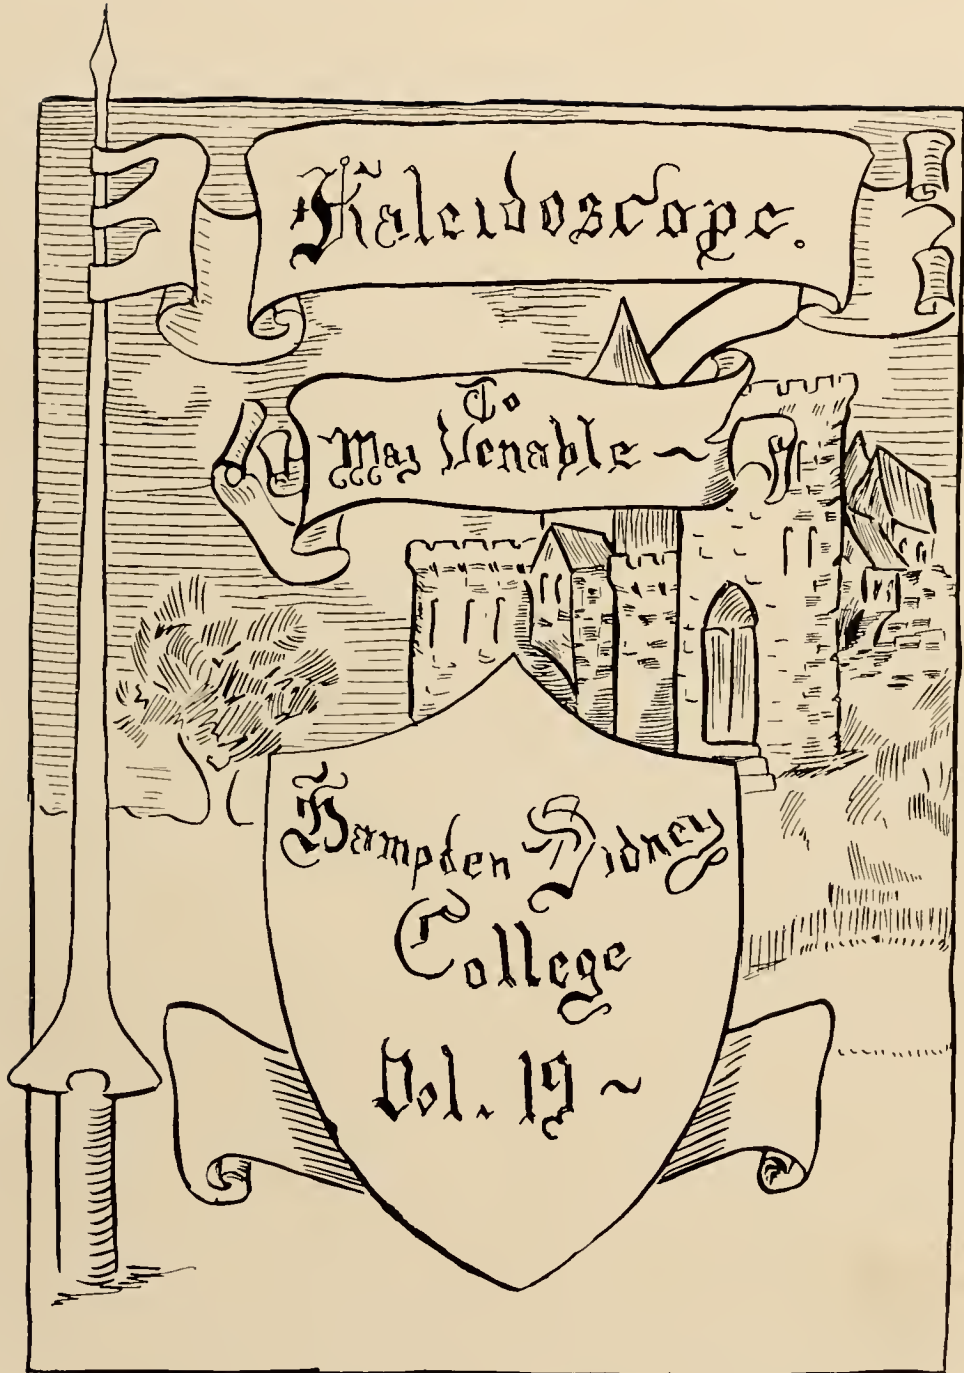 Kaleidoscope.
To
Maj Venable ~
Hampden Sidney
College
Vol. 19 ~